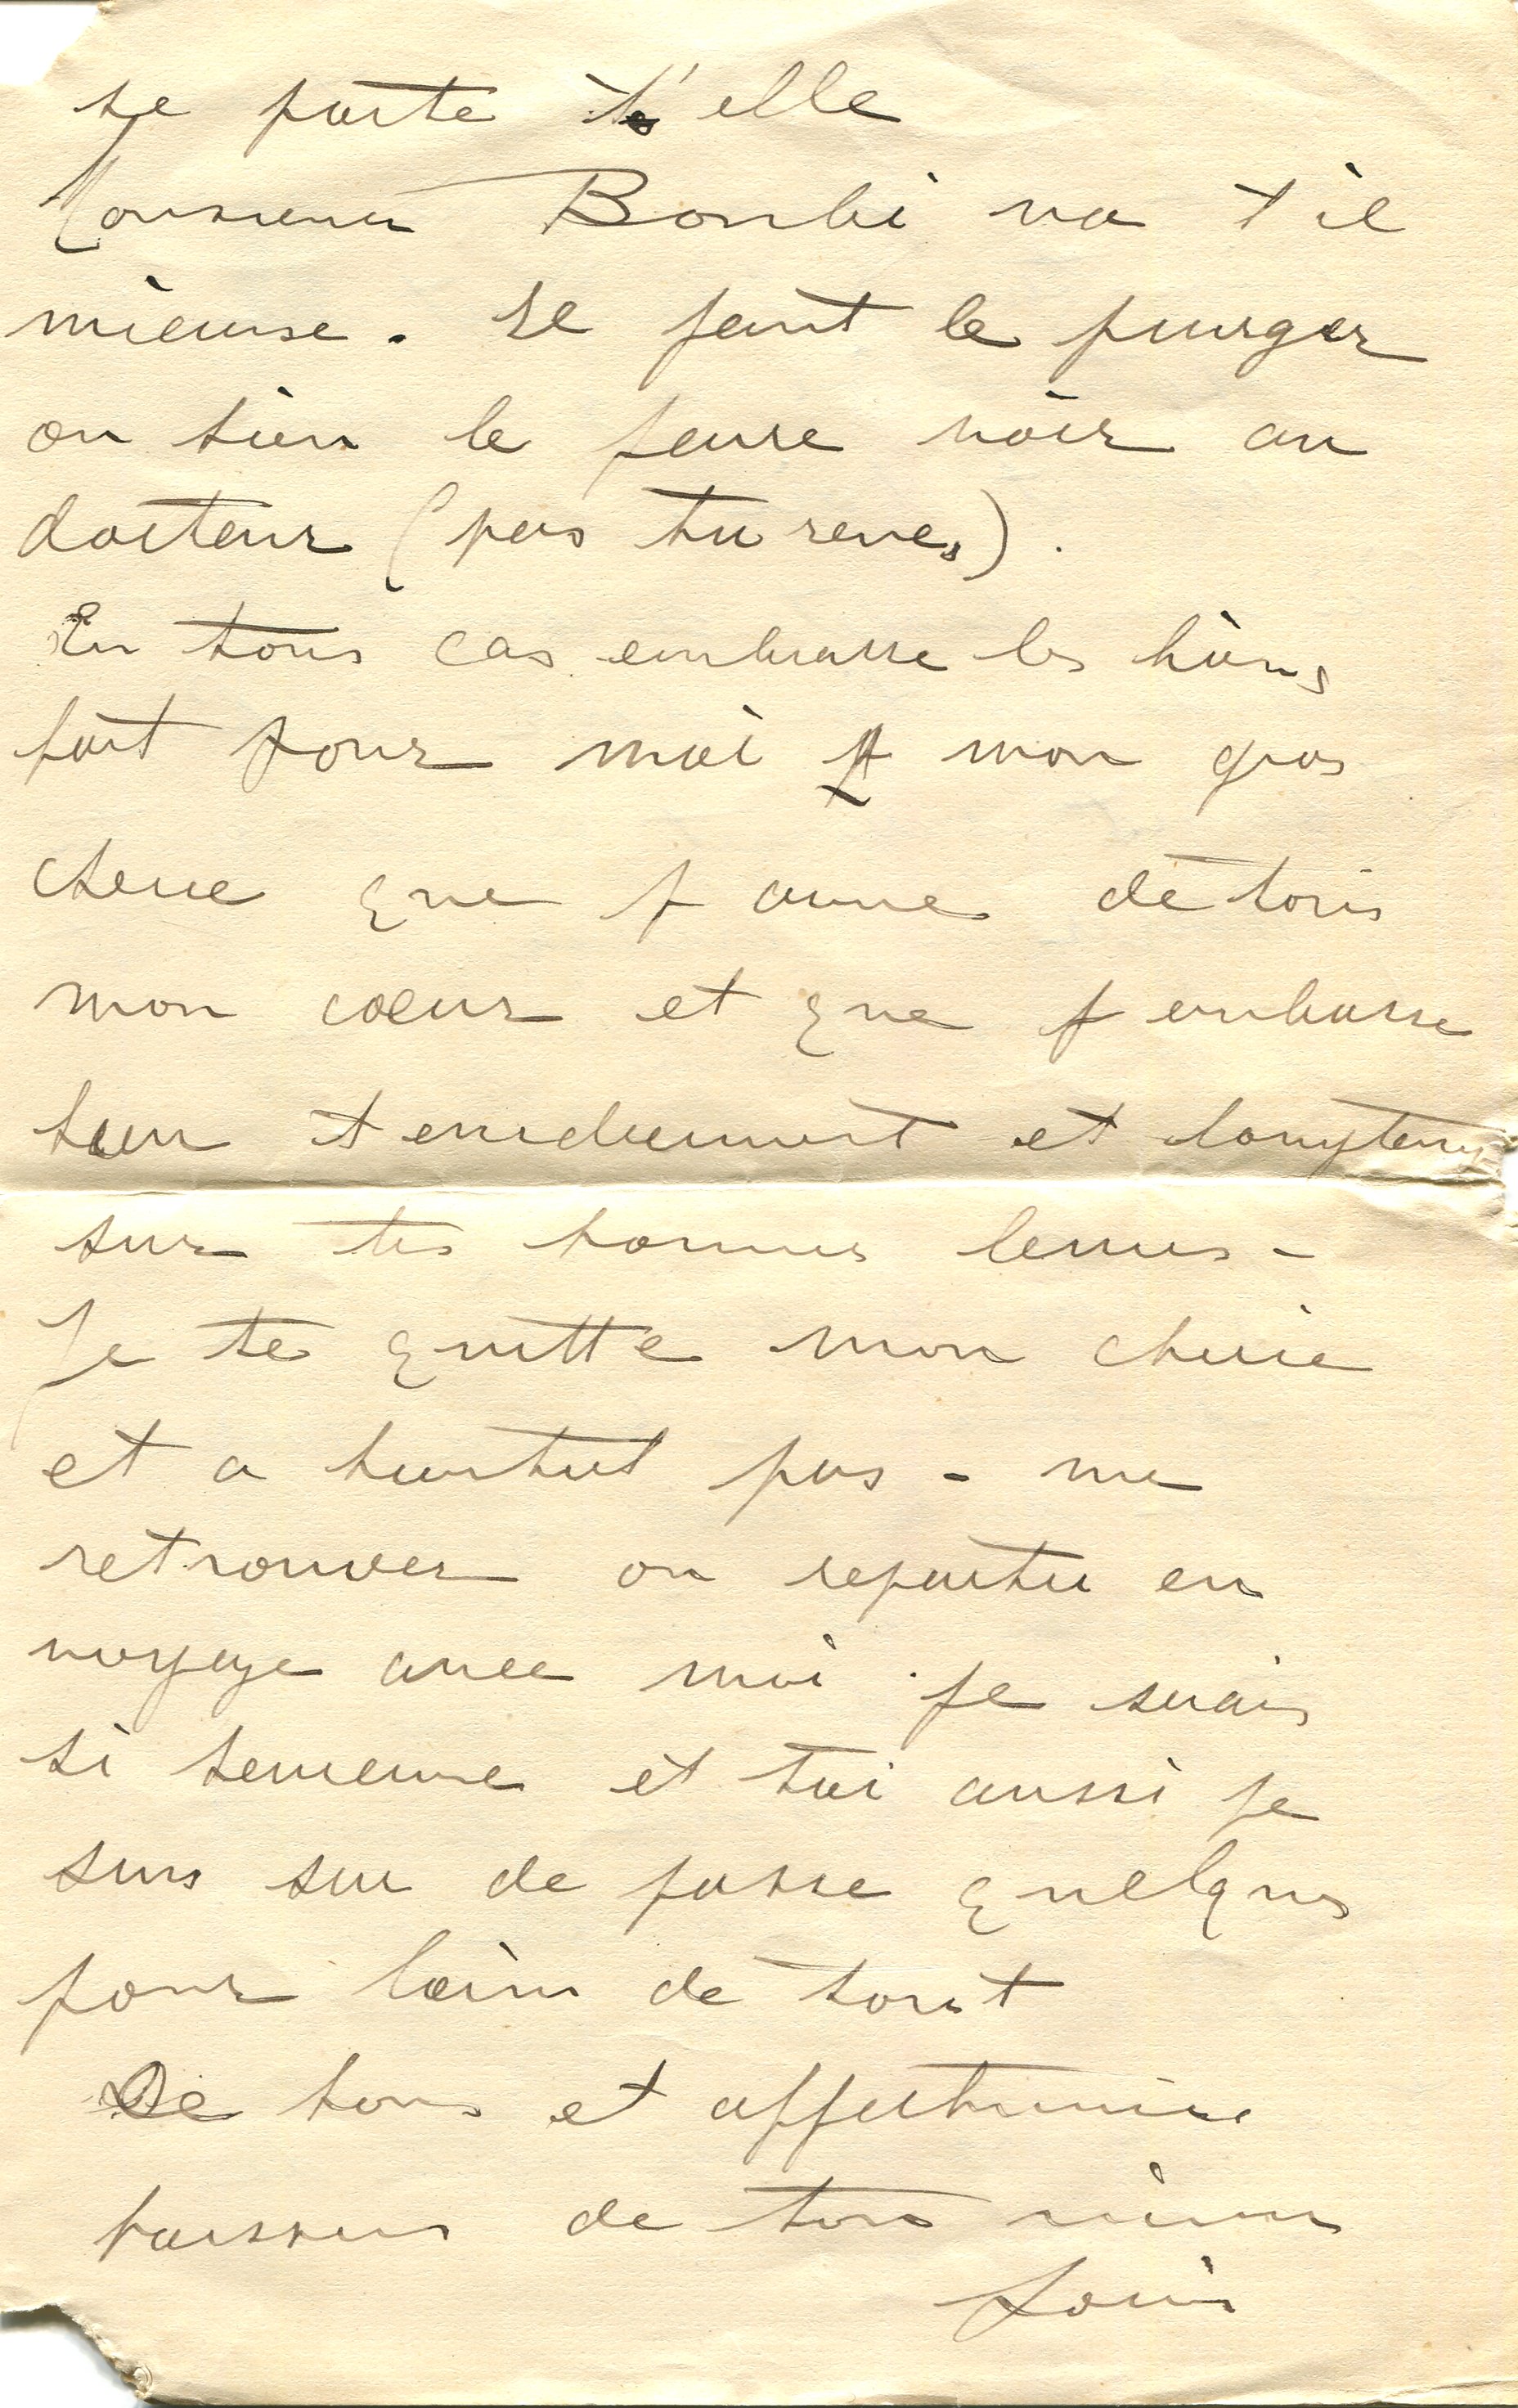 se porte t'elle
Monsieur Bonbi va t il
mieuse. Il faut le purger
ou bien le faire voir au
docteur (pas tu reves).
En tous cas embrasse les biens
fort pour moi mon gros
cherie que j aime de tous
mon coeur et que j embrasse
bien tendrement et longtemps
sur tes bonnes levres -
Je te quitte mon cherie
et a bientot pas - me
retrouver ou repartir en
voyage avec moi je serais
si heureuse et toi aussi je
suis sur de passe quelques
jour loins de tout
De bons et affectueuse
baisers de ton
Louis